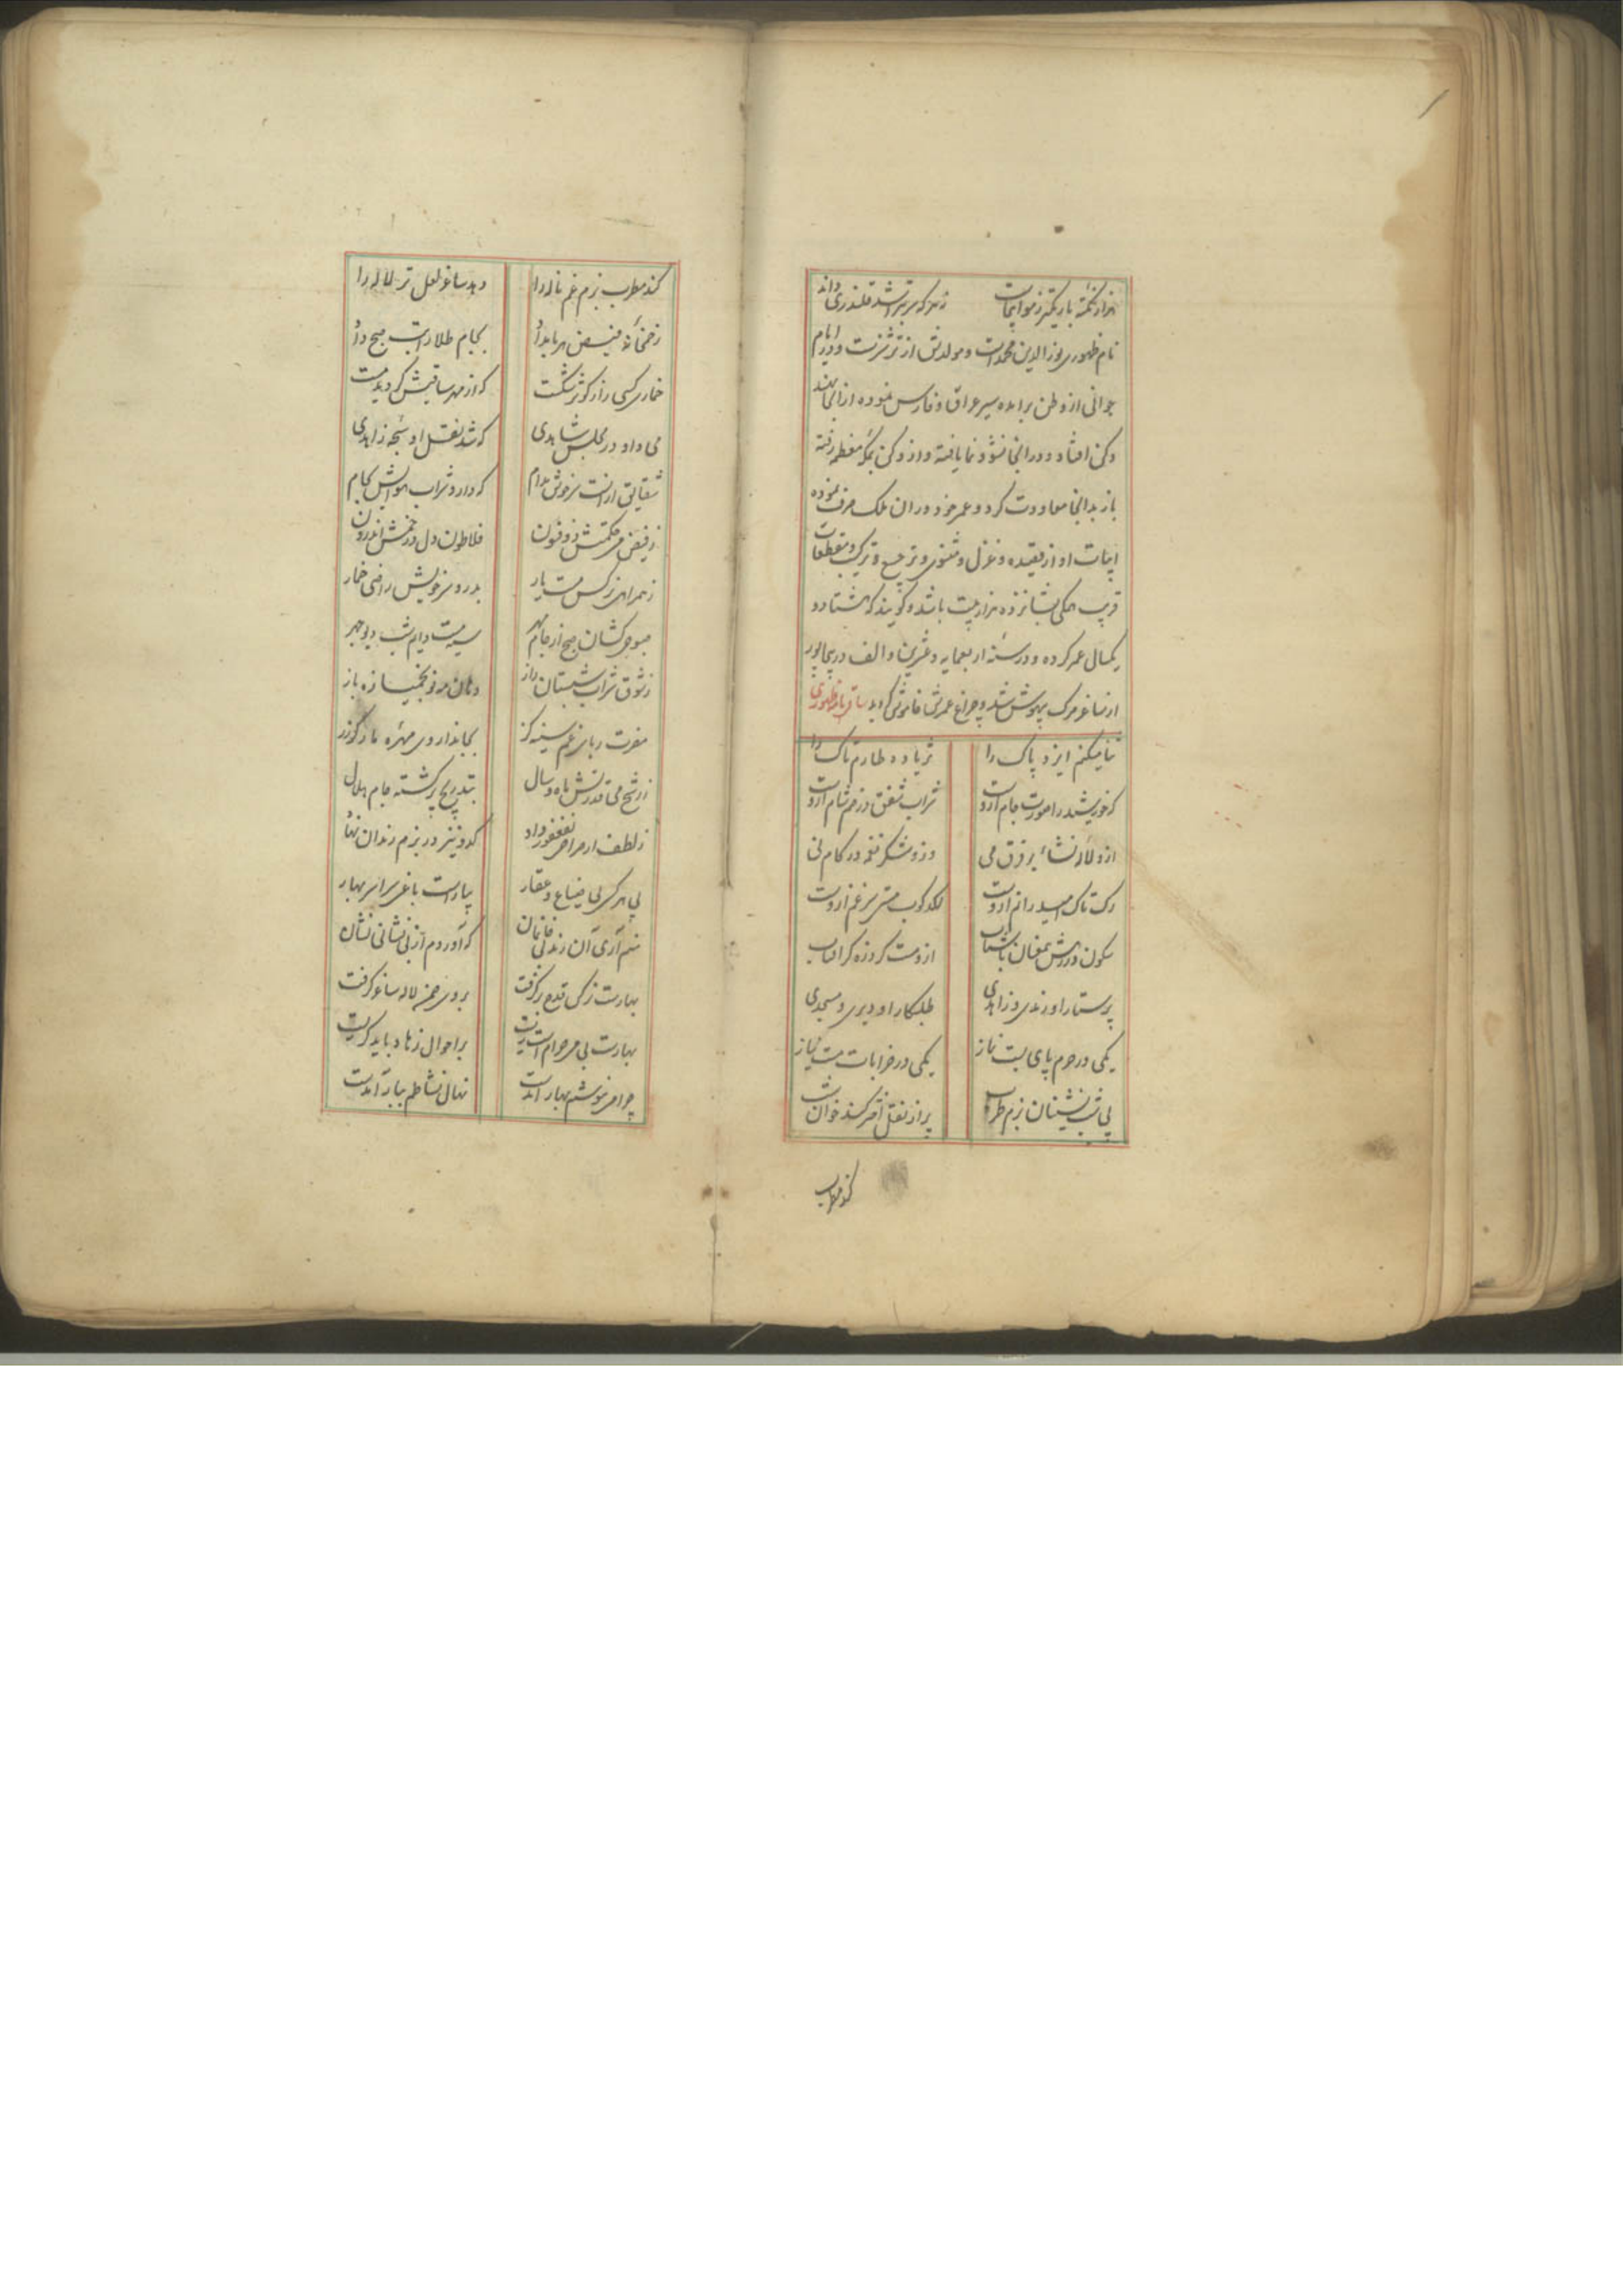 هزار نکته باریکتر ز مو اینجاست نه هر که سر بتراشد قلندری داند
نام ظهوری نورالدین محمد است و مولدش از ترشیز است و در ایام
جوانی از وطن برآمده سیر عراق و فارس نموده از انجا بهند
دکن افتاد و در انجا نشو و نما یافته و از دکن بمکه معظمه رفته
باز بدانجا معاودت کرد و عمر خود در ان ملک صرف نموده
ابیات او از قصیده و غزل و مثنوی و ترجیع و ترکیب و مقطعات
قریب همگی بشانزده هزار بیت باشد و گویند که هشتاد و
یکسال عمر کرده و در سنه اربعمایه و عشرین و الف در بیجاپور
از ساغر مرگ بیهوش شد و چراغ عمرش خاموش گردید ساقی نامه ظهوری
ثنا میکنم ایزد پاک را ثریا ده طارم تاک را
که خورشید را صورت جام ازوست شراب شفق در خم شام ازوست
ازو لاله نشاء بر فرق می وزو شکر نغمه در کام نی
رگ تاک امید را نم ازوست لگدکوب مستی سر غم ازوست
سکون درزش مغان با شتاب ازو مست گر ذره گر افتاب
پرستار او رندی و زاهدی طلبکار او دیری و مسجدی
یکی در حرم پای بست نماز یکی در خرابات مست نیاز
پی شب نشینان بزم طرب پر از نقل اختر کند خوان شب
کند مطرب
کند مطرب بزم غم ناله را دهد ساغر لعل تر لاله را
ز خمخانه فیض هر بامداد بجام طلا راتب صبح داد
خماری کسی را ز کوثر شکست که از مهر ساقیش گردید مست
می داد در مجلس شاهدی که شد نقل او سبحه زاهدی
شقایق ازانست سرخوش مدام که دارد شراب هوایش بجام
ز فیض می حکمتش ذو فنون فلاطون دل در خمش اندرون
ز همراهی نرگس مست یار بدرد سر خویش راضی خمار
صبوحی کشان صبح از جام مهر سیه مست دایم شب دیو چهر
ز شوق شراب شبستان راز دهان مه نو بخمیازه باز
مضرت ربای غم سینه گز بجاندار وی مهره مار گز
ز رشح می قدرتش ماه و سال بتدریج پر گشته جام هلال
ز لطف ار مراحی بفغفور داد کدو نیز در بزم رندان نهاد
پی هر کس بی ضیاع و عقار بیاراست باغی سراسر بهار
منم آری آن رند بی خانمان که آوردم از بی نشانی نشان
بهارست نرگس قدح بر گرفت بروی چمن لاله ساغر گرفت
بهارست بی می حرام است زیست بر احوال زهاد باید گریست
چرا می ننوشم بهار آمدست نهال نشاطم ببار آمدست